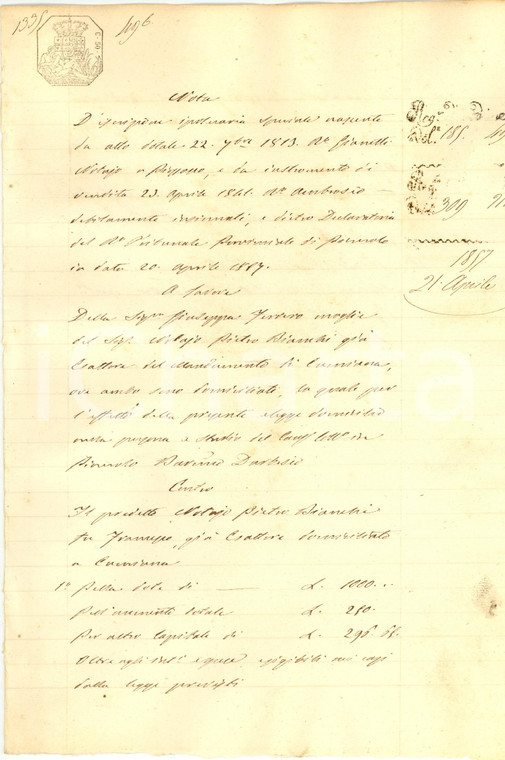 1335 1496
C. 50
Nota
D'iscrizione ipotecaria speciale nascente
da atto dotale 22. 7bre 1813. Rto
Notajo a e da instrumento di
vendita 23. Aprile 1841. Rto Ambrosio
debitamente insinuati, e dietro Declaratoria
del Rº Tribunale Provinciale di Pinerolo
in data 20. Aprile 1857.
A favore
Della Sigra Giuseppa Ferraro moglie
del Sigr Notajo Pietro Bianchi già
Esattore del Mandamento di Cumiana,
ove ambo sono domiciliati, la quale per
l'effetto della presente elegge domicilio
nella persona e studio del Causco Collo in
Pinerolo
Contro
Il predetto Notajo Pietro Bianchi
fu già Esattore domiciliato
a Cumiana
1º Della dote di L. 1000.
Dell'aumento dotale L. 250.
Per altro capitale di L. 296.
Oltre agli e spese, esigibili nei casi
dalla legge previsti
Reg.
Vol. 185.
309
1857
21. Aprile